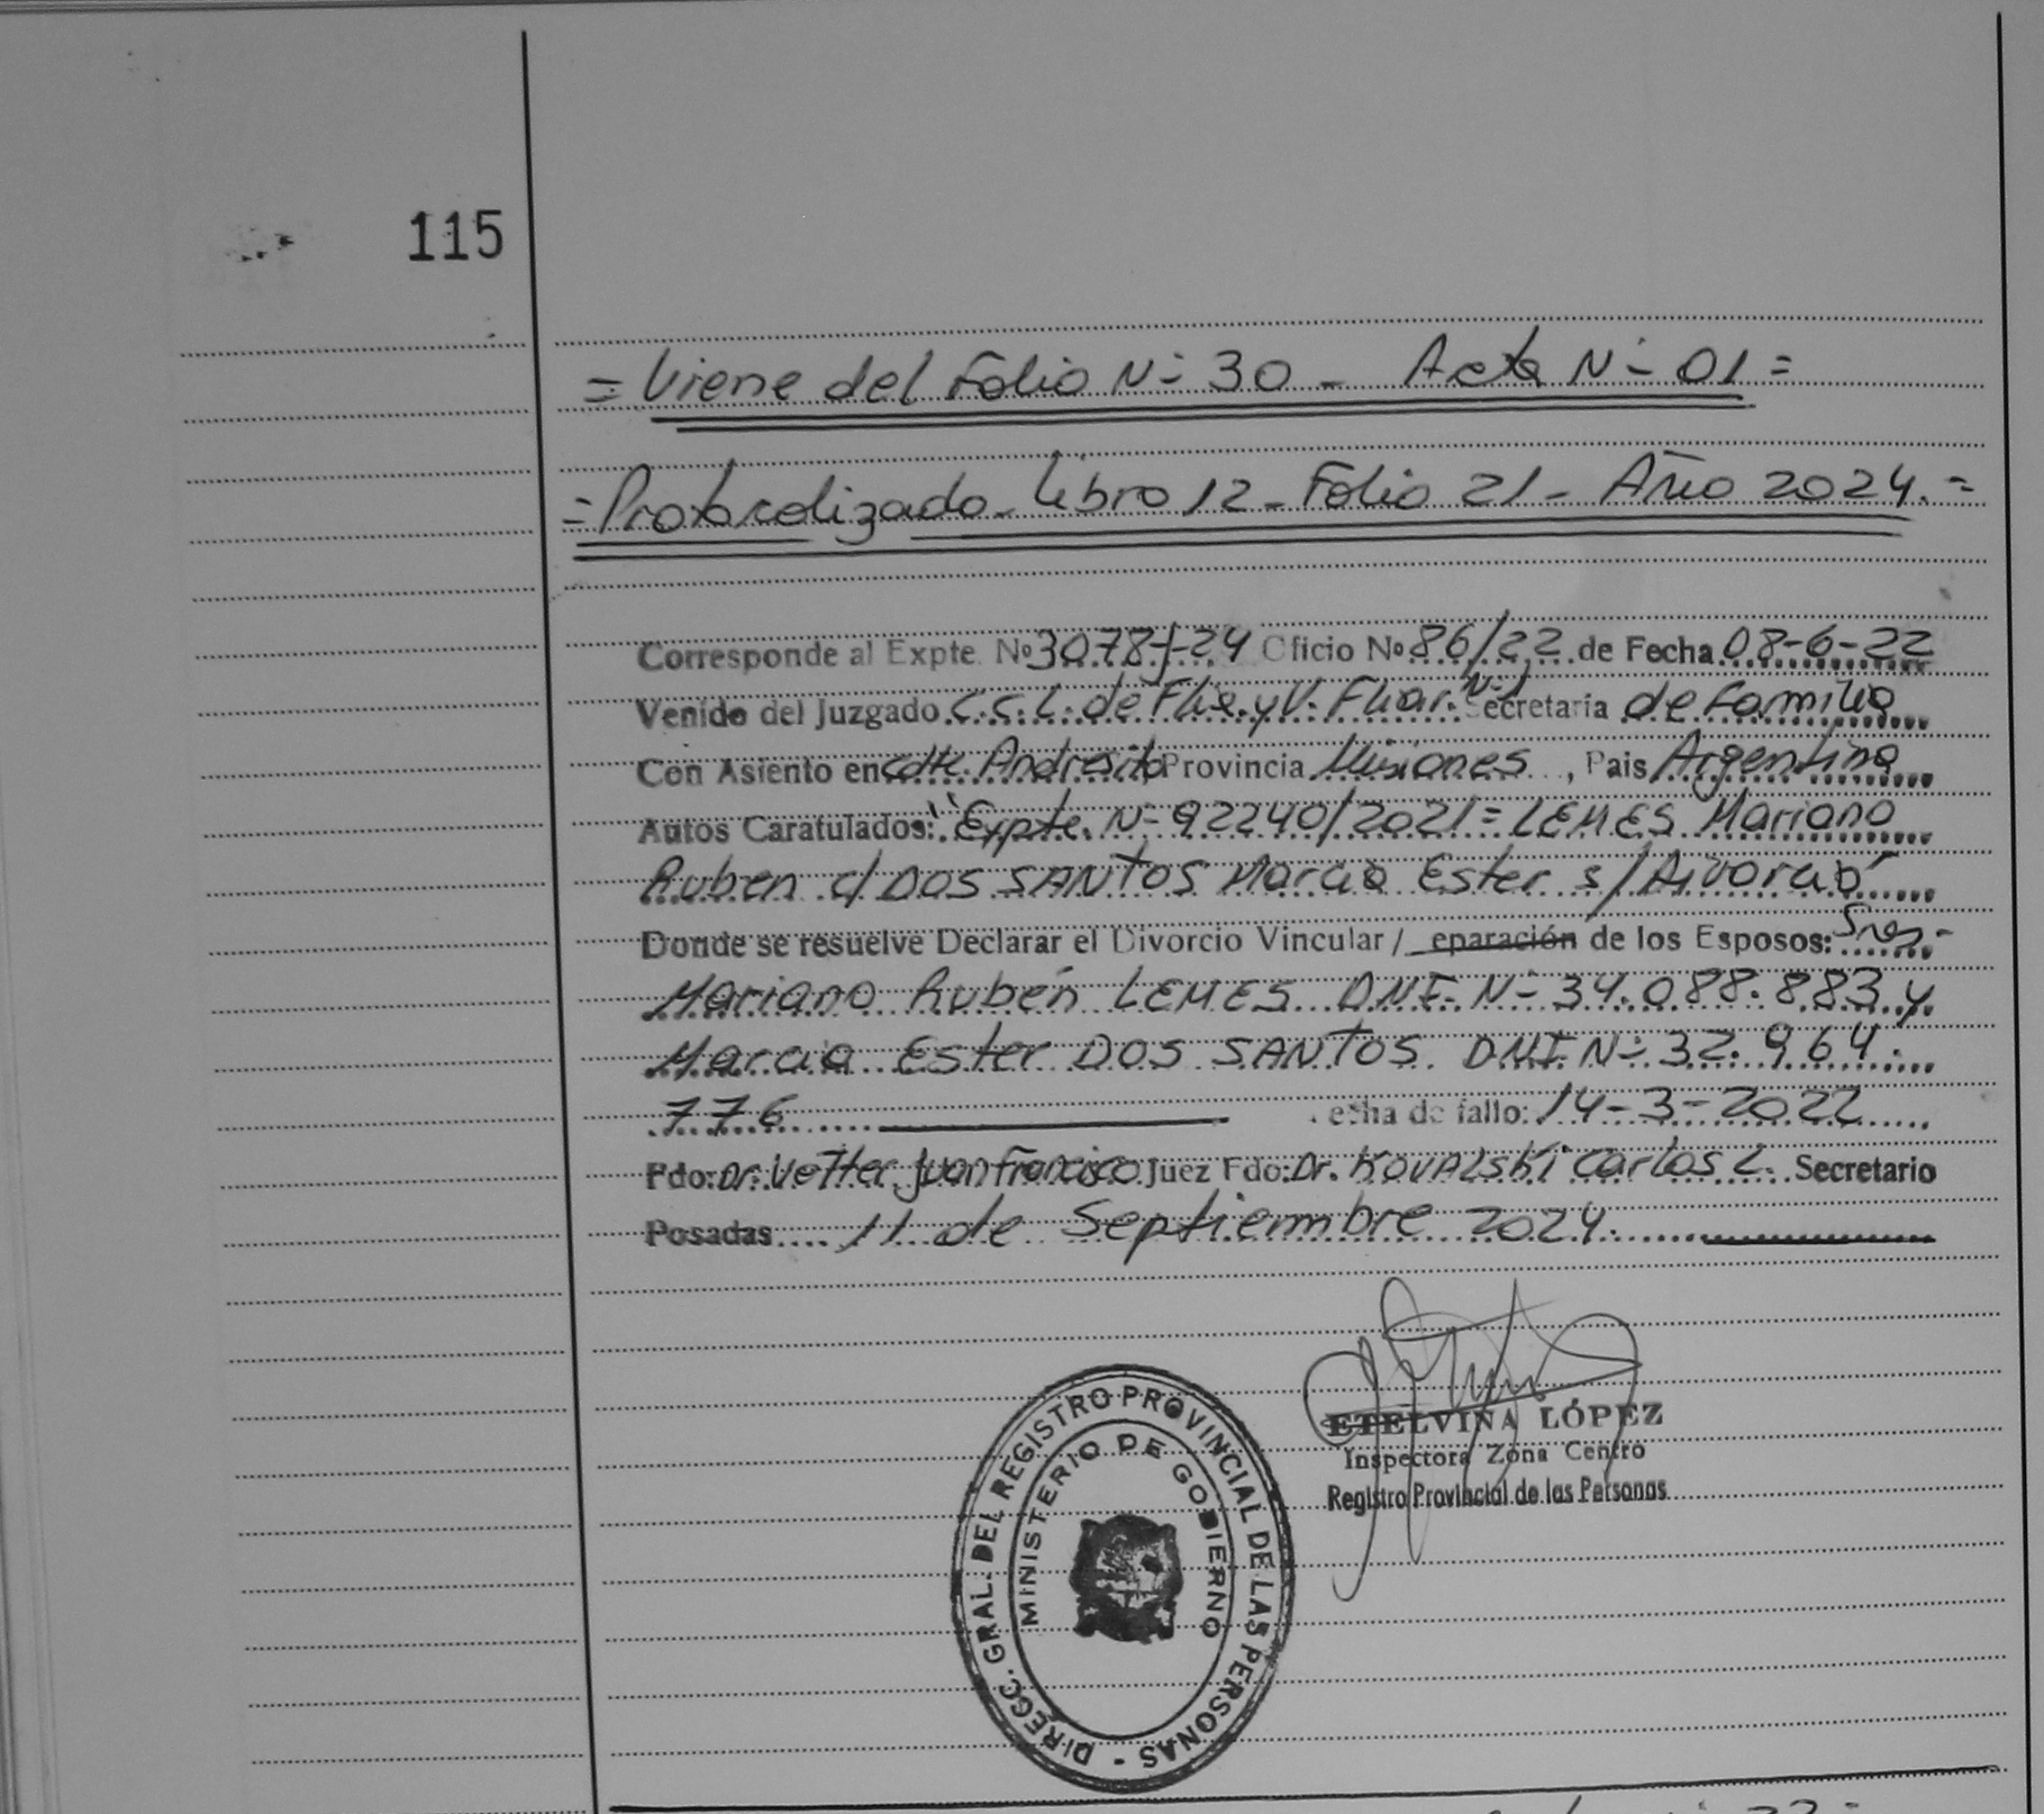 115
= Viene del Folio Nº 30 - Acta Nº 01 =
= Protocolizado - Libro 12 - Folio 21 - Año 2024. =
Corresponde al Expte. Nº 3078-J-24 Oficio Nº 86/22 de Fecha 08-6-22
Venido del Juzgado C.C.L. de Flia. y V. Fliar. Nº 1 Secretaria de Familia
Con Asiento en Cdte. Andresito Provincia Misiones, Pais Argentina
Autos Caratulados: "Expte. Nº 92240/2021 = LEMES Mariano
Ruben c/ DOS SANTOS Marcia Ester s/ Divorcio"
Donde se resuelve Declarar el Divorcio Vincular / eparación de los Esposos: Sres.-
Mariano Rubén LEMES DNI. Nº 34.088.883 y
Marcia Ester DOS SANTOS DNI Nº 32.964.
776 echa de fallo: 14-3-2022
Fdo: Dr. Vetter Juan Francisco Juez Fdo: Dr. KOVALSKI Carlos L. Secretario
Posadas 11 de Septiembre 2024.
ETELVINA LÓPEZ
Inspectora Zona Centro
Registro Provincial de las Personas
DIRECC. GRAL. DEL REGISTRO PROVINCIAL DE LAS PERSONAS -
MINISTERIO DE GOBIERNO